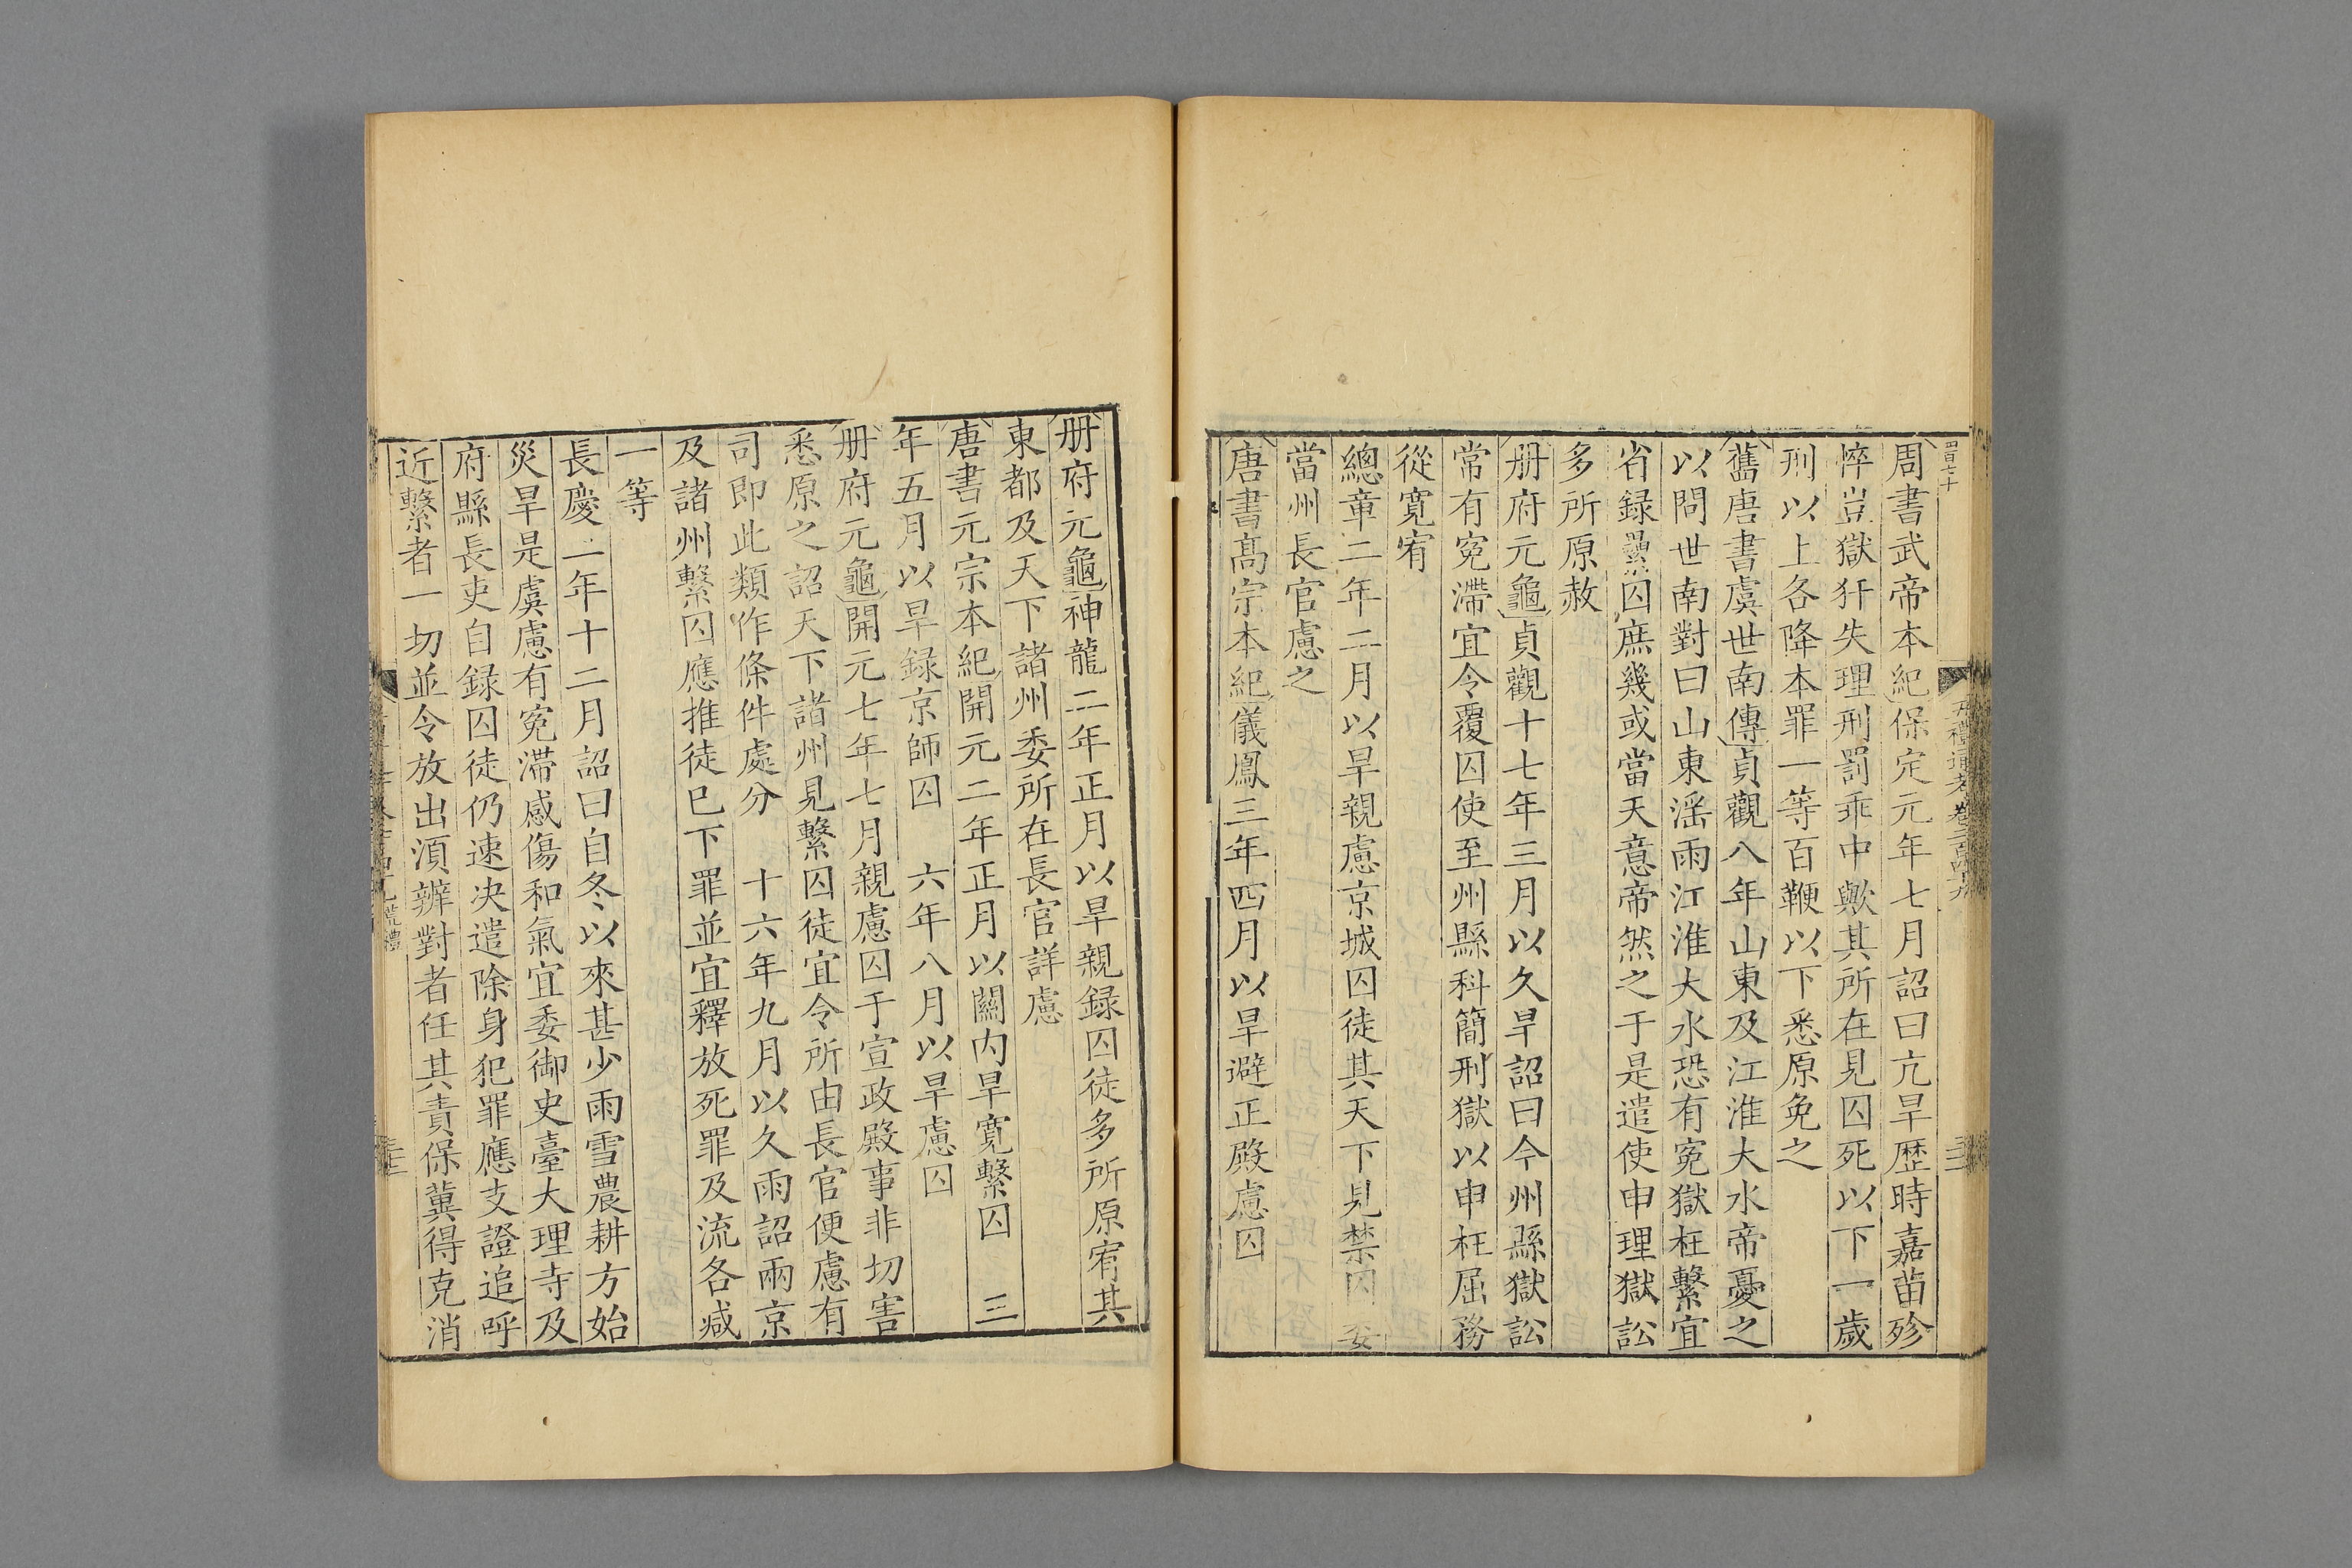 四百七十
五禮通考卷二百四九
周書武帝本紀保定元年七月詔曰亢旱歷時嘉苗殄
悴豈獄犴失理刑罰乖中歟其所在見囚死以下一歲
刑以上各降本罪一等百鞭以下悉原免之
舊唐書虞世南傳貞觀八年山東及江淮大水帝憂之
以問世南對曰山東淫雨江淮大水恐有冤獄枉繫宜
省録纍囚庶幾或當天意帝然之于是遣使申理獄訟
多所原赦
册府元龜貞觀十七年三月以久旱詔曰今州縣獄訟
常有冤滯宜令覆囚使至州縣科簡刑獄以申枉屈務
從寛宥
總章二年二月以旱親慮京城囚徒其天下見禁囚委
當州長官慮之
唐書高宗本紀儀鳳三年四月以旱避正殿慮囚
册府元龜神龍二年正月以旱親録囚徒多所原宥其
東都及天下諸州委所在長官詳慮
唐書元宗本紀開元二年正月以關内旱寛繫囚　三
年五月以旱録京師囚　六年八月以旱慮囚
册府元龜開元七年七月親慮囚于宣政殿事非切害
悉原之詔天下諸州見繫囚徒宜令所由長官便慮有
司即此類作條件處分　十六年九月以久雨詔兩京
及諸州繫囚應推徒已下罪並宜釋放死罪及流各减
一等
長慶二年十二月詔曰自冬以來甚少雨雪農耕方始
災旱是虞慮有冤滯感傷和氣宜委御史臺大理寺及
府縣長吏自録囚徒仍速决遣除身犯罪應支證追呼
近繫者一切並令放出湏辨對者任其責保冀得克消